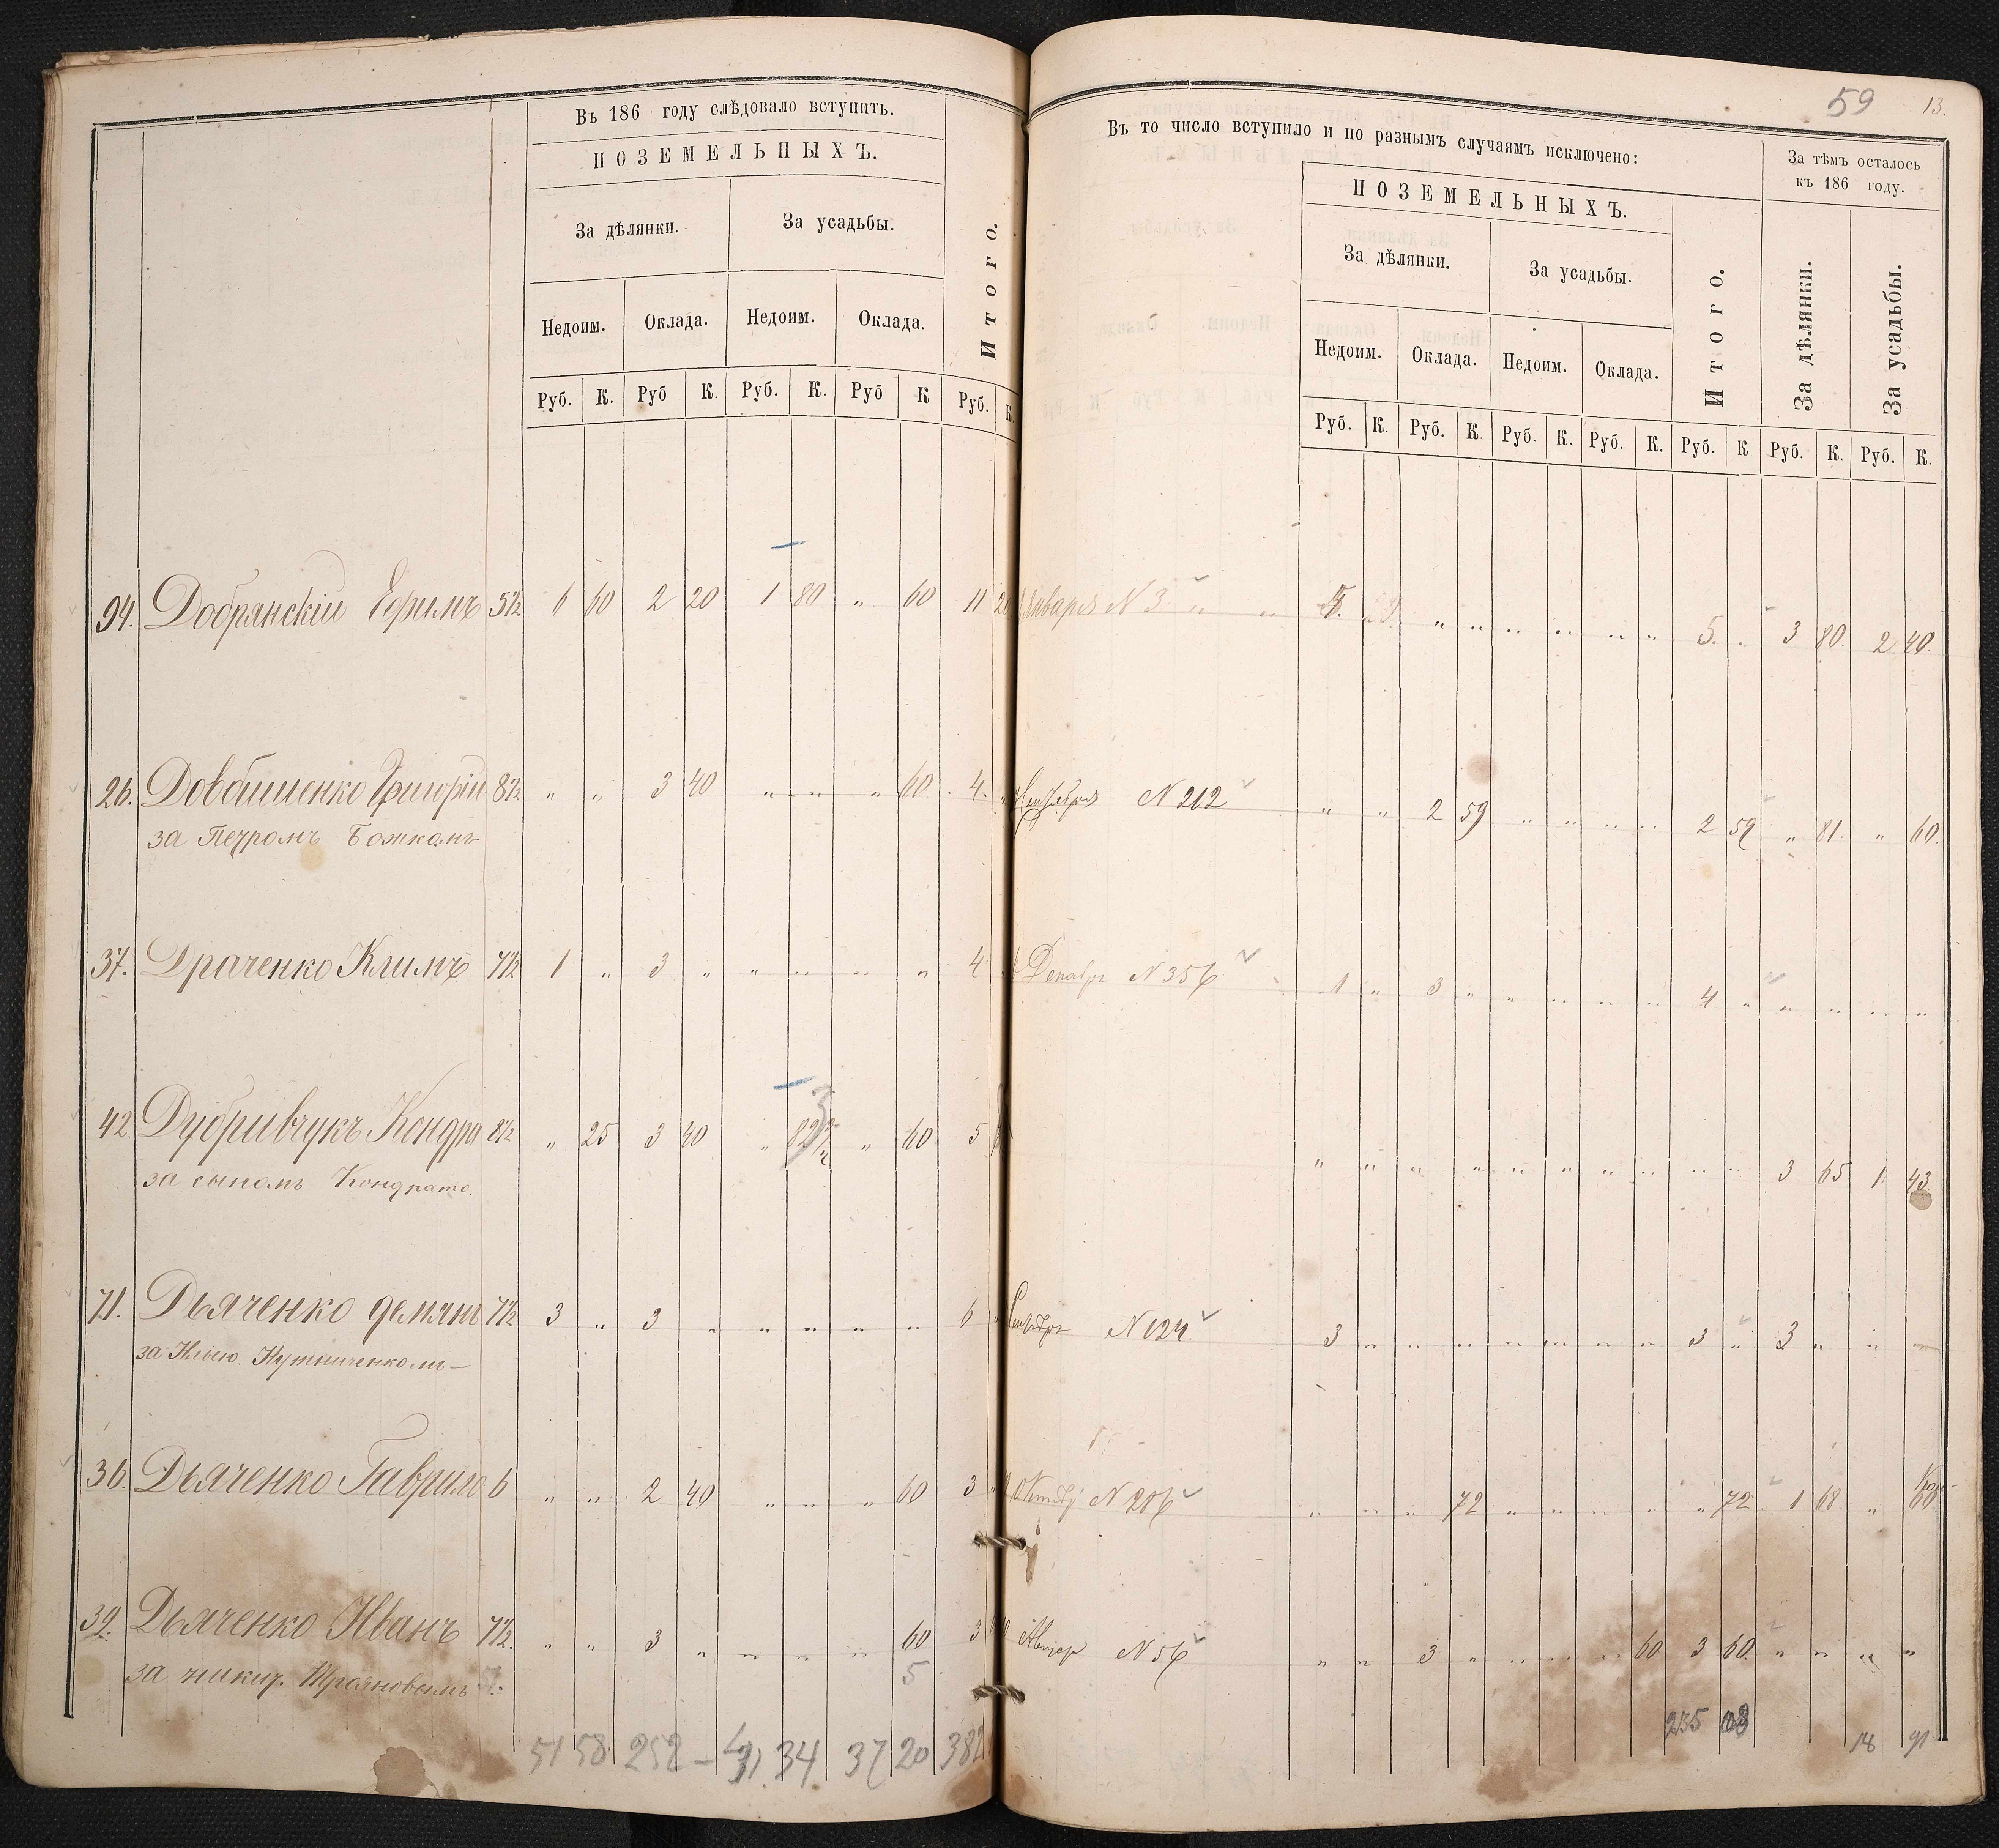 Въ 186 году слѣдовало вступить.
ПОЗЕМЕЛЬНЫХЪ.
За дѣлянки. За усадьбы. Итого.
Недоим. Оклада. Недоим. Оклада.
Руб. К. Руб К. Руб. К. Руб К Руб. К.
94. Добрянскій Ефимъ 5½ 6 60 2 20 1 80 „ 60 11 20
26. Григорій 8½ „ „ 3 40 „ „ „ 60 4. „
за Петромъ Божкомъ
37. Драченко Климъ 7½ 1 „ 3 „ „ „ „ „ 4
42 8½ „ 25 3 40 „ „ 60 5
за сыномъ Кондрато.
71. Дьяченко Демянъ 7½ 3 „ 3 „ „ „ „ „ 6
за
36. Дьяченко Гаврило 6 „ „ 2 40 „ „ „ 60 3 „
39. Дьяченко Иванъ 7½. „ „ 3 „ „ „ „ 60 3 60
за никит. Трояновымъ 5
51 58 252 – 31. 34 37 20 382
59 13.
Въ то число вступило и по разнымъ случаямъ исключено:
За тѣмъ осталось
къ 186 году.
ПОЗЕМЕЛЬНЫХЪ.
За дѣлянки. За усадьбы. Итого. За дѣлянки. За усадьбы.
Недоим. Оклада. Недоим. Оклада.
Руб. К. Руб. К. Руб. К. Руб. К. Руб. К Руб. К. Руб. К.
Января N 3 „ „ 5. „ „ „ „ „ „ „ 5. „ 3 80 2 40
N 212 „ „ 2 59 „ „ „ „ 2 59 „ 81. „ 60.
Декабр N 356 1 „ 3 „ „ „ „ „ 4 „ „ „ „ „
„ „ „ „ „ „ „ „ „ „ 3 65 1 43
N 124. 3 „ „ „ „ „ „ „ 3 „ 3 „ „ —
N 206 „ „ „ 72 „ „ „ „ „ 72 1 68 „ 60
N 56 „ „ 3 „ „ „ „ 60 3 60. „ „ „ „
235 18 91